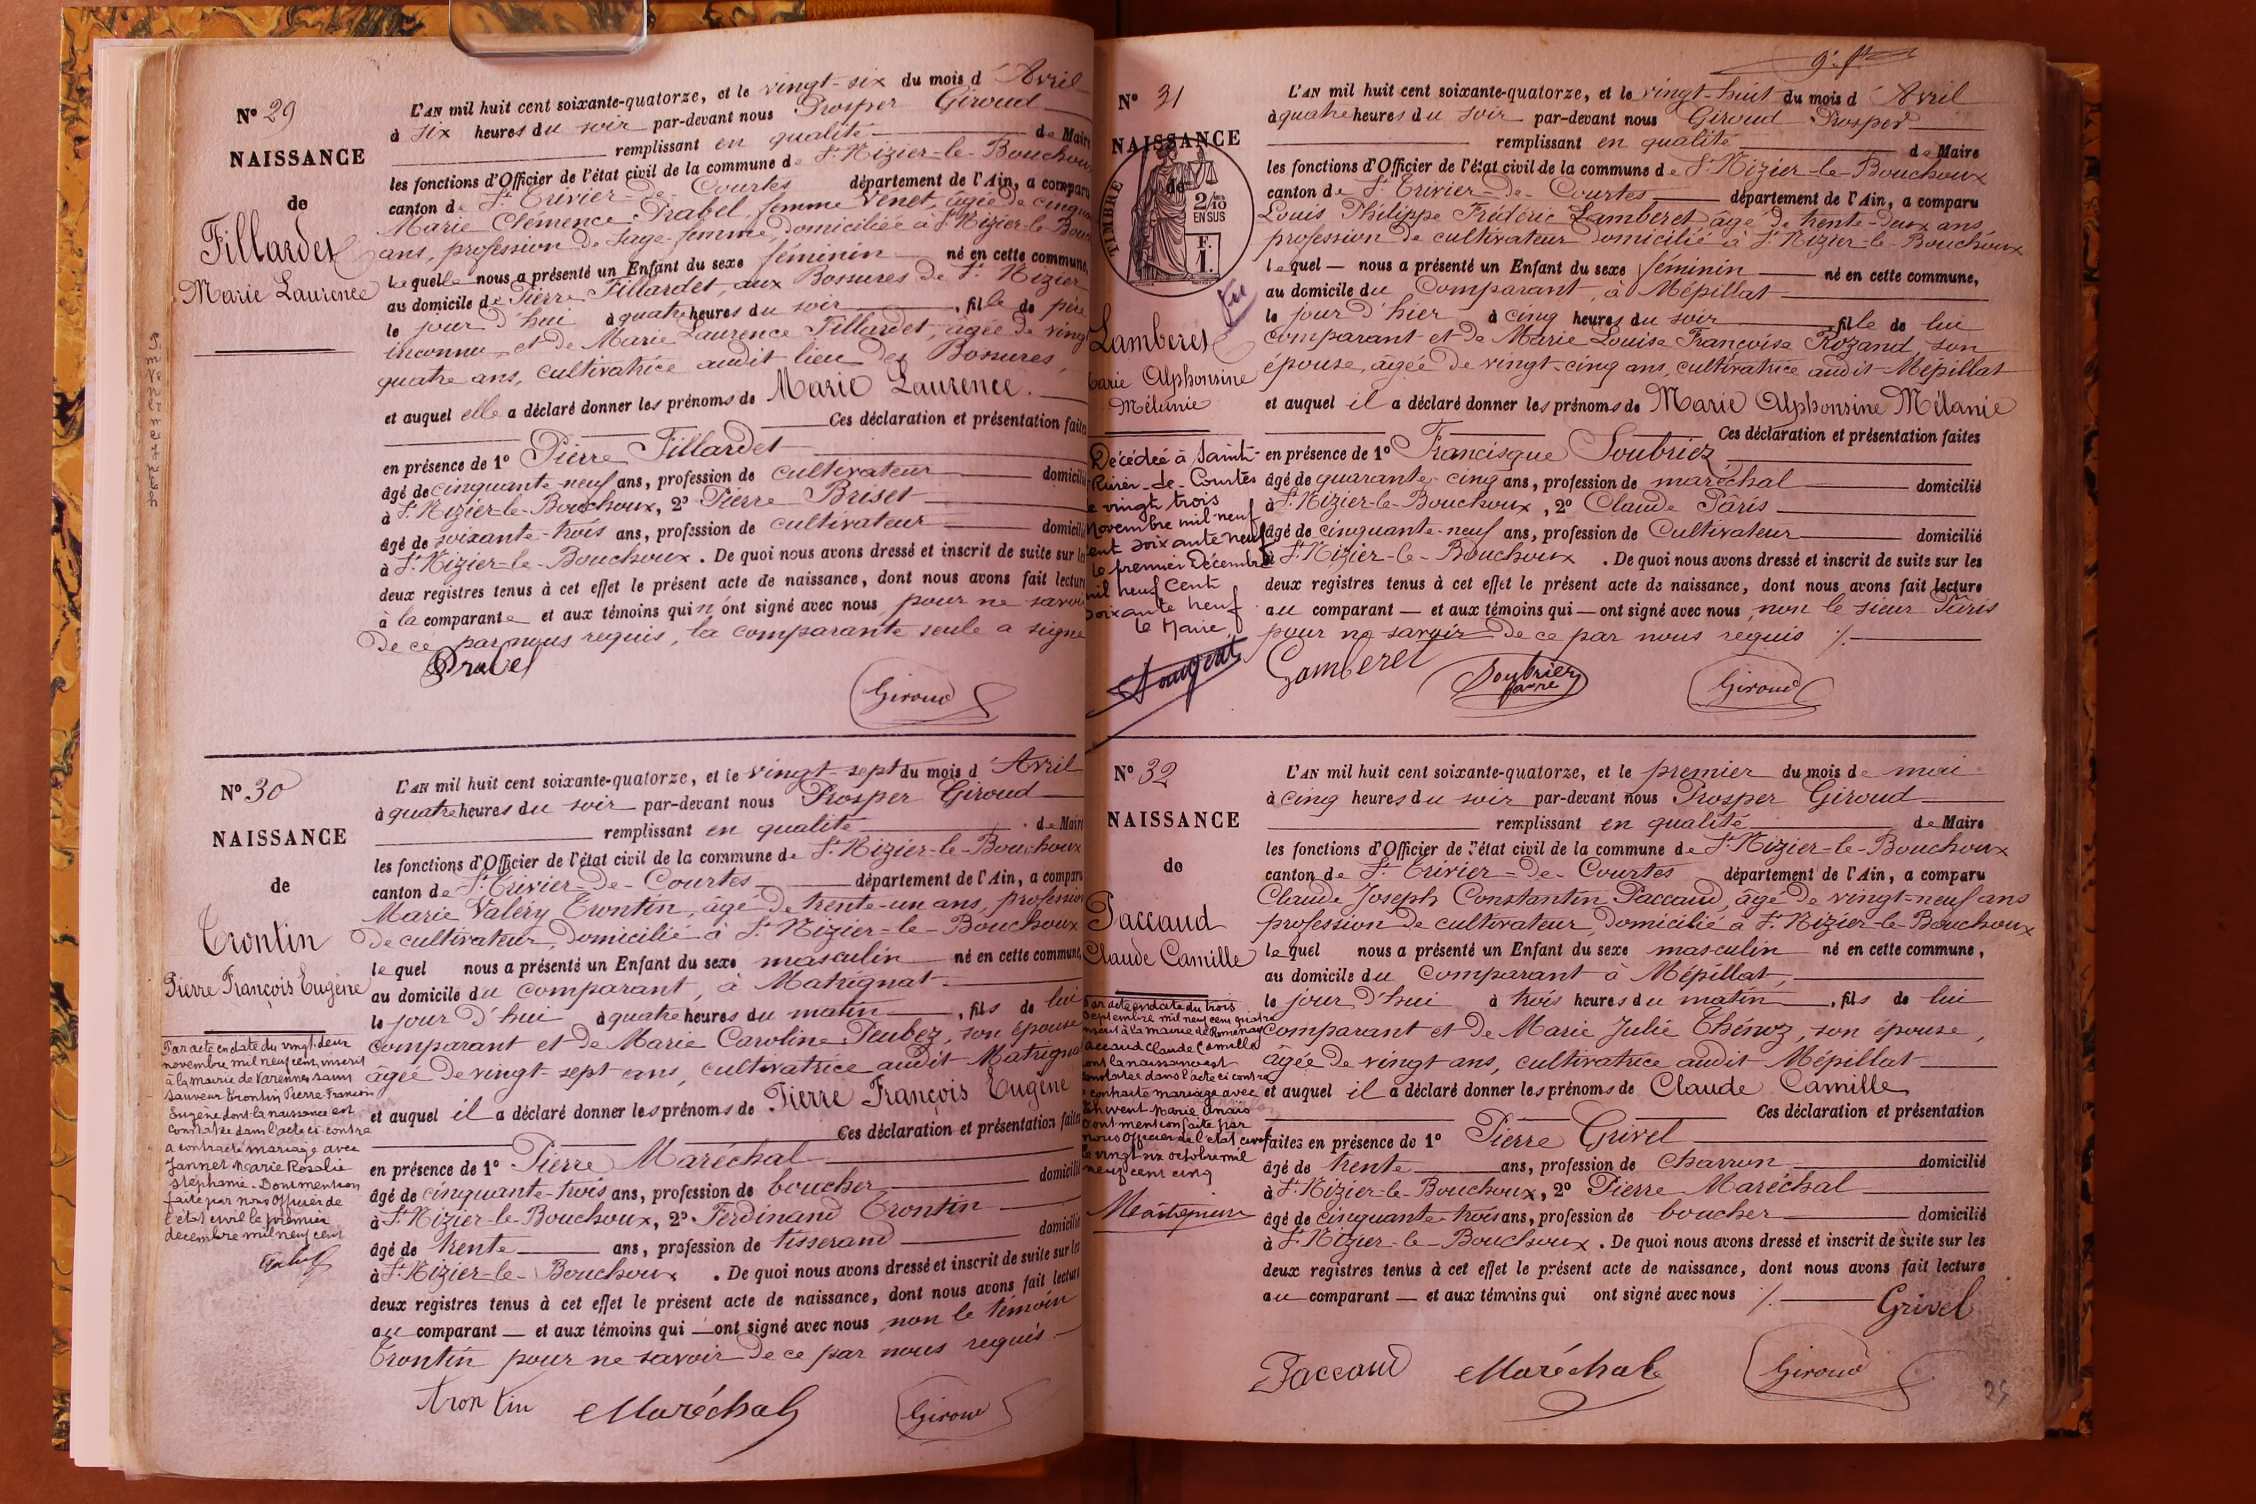 Nº 29
NAISSANCE
de
Fillardet
Marie Laurence
L'AN mil huit cent soixante-quatorze, et le vingt-six du mois d'Avril
à six heures du soir par-devant nous Prosper Giroud
remplissant en qualité de Maire
les fonctions d'Officier de l'état civil de la commune de St Nizier-le-Bouchoux
canton de St Trivier-de-Courtes département de l'Ain, a comparu
Marie Clémence Prabel, femme Venet, âgée de cinquante
ans, profession de sage-femme, domiciliée à St Nizier-le-Bouc
laquelle nous a présenté un Enfant du sexe féminin né en cette commune,
au domicile de Pierre Fillardet, aux Bossures de St Nizier
le jour d'hui à quatre heures du soir, fille de père
inconnu et de Marie Laurence Fillardet, âgée de vingt
quatre ans, cultivatrice audit lieu des Bossures,
et auquel elle a déclaré donner les prénoms de Marie Laurence.
Ces déclaration et présentation faites
en présence de 1º Pierre Fillardet
âgé de cinquante-neuf ans, profession de cultivateur domicilié
à St Nizier-le-Bouchoux, 2º Pierre Briset
âgé de soixante-trois ans, profession de cultivateur domicilié
à St Nizier-le-Bouchoux. De quoi nous avons dressé et inscrit de suite sur les
deux registres tenus à cet effet le présent acte de naissance, dont nous avons fait lecture
à la comparante et aux témoins qui n'ont signé avec nous, pour ne savoir
de ce par nous requis, la comparante seule a signé
Prabel
Giroud
Nº 30
NAISSANCE
de
Trontin
Pierre François Eugène
Par acte en date du vingt-deux
novembre mil neuf cent, inscrit
à la mairie de Varennes saint
sauveur Trontin Pierre François
Eugène dont la naissance est
constatée dans l'acte ci-contre
a contracté mariage avec
Jannet Marie Rosalie
Stéphanie. Dont mention
faite par nous Officier de
l'état civil le premier
décembre mil neuf cent
L'AN mil huit cent soixante-quatorze, et le vingt-sept du mois d'Avril
à quatre heures du soir par-devant nous Prosper Giroud
remplissant en qualité de Maire
les fonctions d'Officier de l'état civil de la commune de St Nizier-le-Bouchoux
canton de St Trivier-de-Courtes département de l'Ain, a comparu
Marie Valéry Trontin, âgé de trente-un ans, profession
de cultivateur, domicilié à St Nizier-le-Bouchoux
lequel nous a présenté un Enfant du sexe masculin né en cette commune,
au domicile du comparant, à Matrignat
le jour d'hui à quatre heures du matin, fils de lui
comparant et de Marie Caroline Peubez, son épouse
âgée de vingt-sept ans, cultivatrice audit Matrignat
et auquel il a déclaré donner les prénoms de Pierre François Eugène
Ces déclaration et présentation faites
en présence de 1º Pierre Maréchal
âgé de cinquante-trois ans, profession de boucher domicilié
à St Nizier-le-Bouchoux, 2º Ferdinand Trontin
âgé de trente ans, profession de tisserand domicilié
à St Nizier-le-Bouchoux. De quoi nous avons dressé et inscrit de suite sur les
deux registres tenus à cet effet le présent acte de naissance, dont nous avons fait lecture
au comparant et aux témoins qui ont signé avec nous, non le témoin
Trontin pour ne savoir de ce par nous requis
trontin Maréchal Giroud
Nº 31
NAISSANCE
de
TIMBRE
2/10
EN SUS
F.
1.
Lamberet
Marie Alphonsine
Mélanie
Décédée à Saint-
Trivier-de-Courtes
le vingt trois
Novembre mil neuf
cent soixante neuf
le premier Décembre
mil neuf Cent
soixante neuf
le Maire
L'AN mil huit cent soixante-quatorze, et le vingt-huit du mois d'Avril
à quatre heures du soir par-devant nous Giroud Prosper
remplissant en qualité de Maire
les fonctions d'Officier de l'état civil de la commune de St Nizier-le-Bouchoux
canton de St Trivier-de-Courtes département de l'Ain, a comparu
Louis Philippe Frédéric Lamberet, âgé de trente-deux ans,
profession de cultivateur domicilié à St Nizier-le-Bouchoux
lequel nous a présenté un Enfant du sexe féminin né en cette commune,
au domicile du Comparant, à Mépillat
le jour d'hier à cinq heures du soir, fille de lui
comparant et de Marie Louise Françoise Rozand son
épouse, âgée de vingt-cinq ans, cultivatrice audit Mépillat
et auquel il a déclaré donner les prénoms de Marie Alphonsine Mélanie
Ces déclaration et présentation faites
en présence de 1º Francisque Soubriez
âgé de quarante-cinq ans, profession de maréchal domicilié
à St Nizier-le-Bouchoux, 2º Claude Pâris
âgé de cinquante-neuf ans, profession de Cultivateur domicilié
à St Nizier-le-Bouchoux. De quoi nous avons dressé et inscrit de suite sur les
deux registres tenus à cet effet le présent acte de naissance, dont nous avons fait lecture
au comparant et aux témoins qui ont signé avec nous, non le sieur Pâris
pour ne savoir de ce par nous requis ./.
Lamberet Soubrier Giroud
Nº 32
NAISSANCE
de
Paccaud
Claude Camille
Par acte en date du trois
septembre mil neuf cent quatre
inscrit à la mairie de Romenay
Paccaud Claude Camille
dont la naissance est
constatée dans l'acte ci contre
a contracté mariage avec
Marie Anaïs
dont mention faite par
nous Officier de l'état civil
le vingt six octobre mil
neuf cent cinq
L'AN mil huit cent soixante-quatorze, et le premier du mois de mai
à cinq heures du soir par-devant nous Prosper Giroud
remplissant en qualité de Maire
les fonctions d'Officier de l'état civil de la commune de St Nizier-le-Bouchoux
canton de St Trivier-de-Courtes département de l'Ain, a comparu
Claude Joseph Constantin Paccaud, âgé de vingt-neuf ans
profession de cultivateur, domicilié à St Nizier-le-Bouchoux
lequel nous a présenté un Enfant du sexe masculin né en cette commune,
au domicile du comparant à Mépillat,
le jour d'hui à trois heures du matin, fils de lui
comparant et de Marie Julie Thénoz, son épouse,
âgée de vingt ans, cultivatrice audit Mépillat
et auquel il a déclaré donner les prénoms de Claude Camille
Ces déclaration et présentation
faites en présence de 1º Pierre Grivel
âgé de trente ans, profession de charron domicilié
à St Nizier-le-Bouchoux, 2º Pierre Maréchal
âgé de cinquante trois ans, profession de boucher domicilié
à St Nizier-le-Bouchoux. De quoi nous avons dressé et inscrit de suite sur les
deux registres tenus à cet effet le présent acte de naissance, dont nous avons fait lecture
au comparant et aux témoins qui ont signé avec nous ./.
Grivel
Paccaud Maréchal Giroud
25